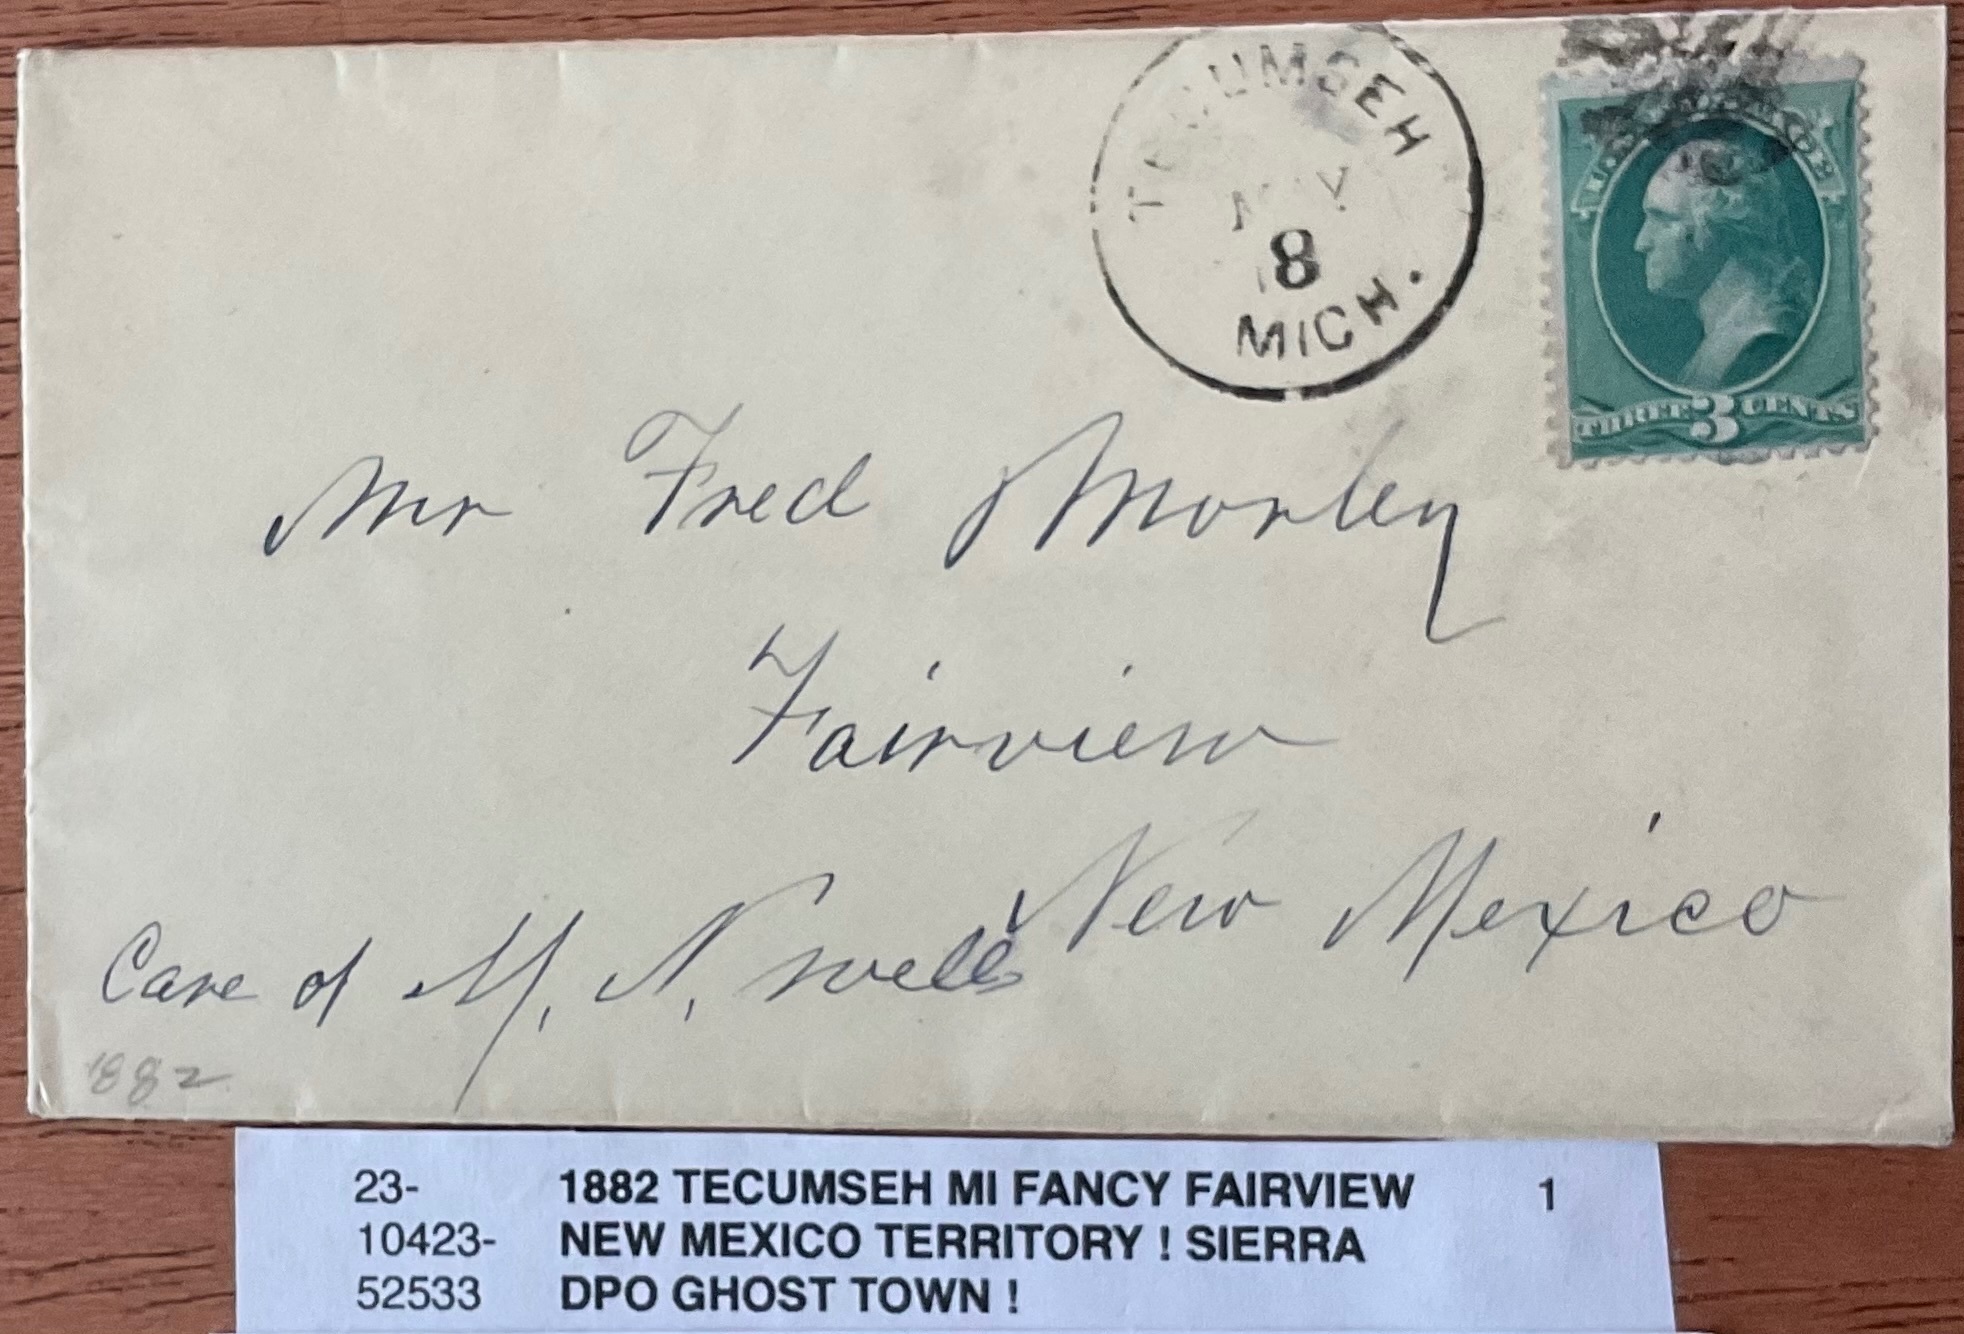 TECUMSEH
MAY
8
MICH.
U.S. POSTAGE
THREE 3 CENTS
Mr Fred Morley
Fairview
New Mexico
Care of M. N. Wells
1882
23- 1882 TECUMSEH MI FANCY FAIRVIEW 1
10423- NEW MEXICO TERRITORY ! SIERRA
52533 DPO GHOST TOWN !